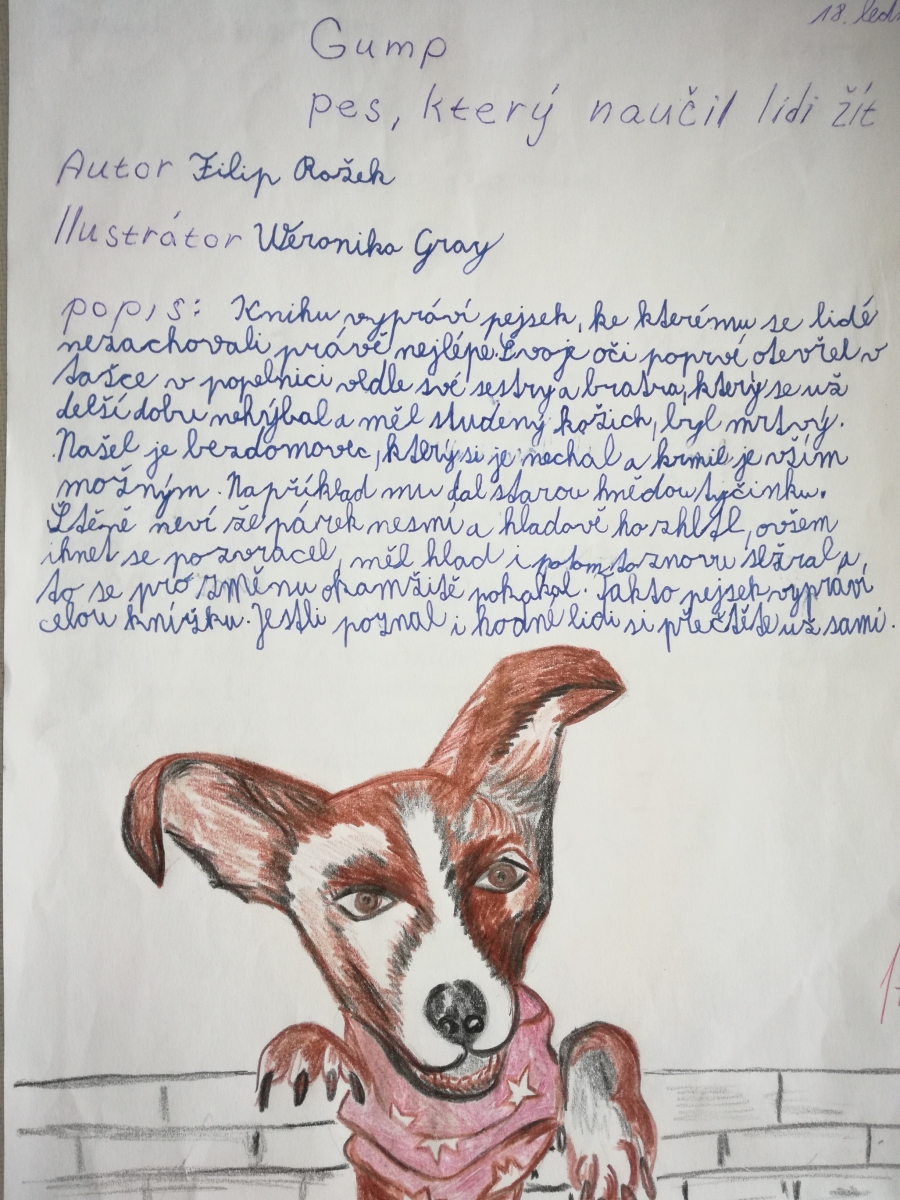 18. led
Gump
pes, který naučil lidi žít
Autor Filip Rožek
Ilustrátor Weronika Gray
popis: Knihu vypráví pejsek, ke kterému se lidé
nezachovali právě nejlépe. Svoje oči poprvé otevřel v
tašce v popelnici vedle své sestry a bratra, který se už
delší dobu nehýbal a měl studený kožich, byl mrtvý.
Našel je bezdomovec, který si je nechal a krmil je vším
možným. Například mu dal starou hnědou tyčinku.
Štěně neví že párek nesmí a hladově ho zhltl, ovšem
ihnet se pozvracel, měl hlad i potom to znovu sežral a,
to se pro změnu okamžitě pokakal. Takto pejsek vypráví
celou knížku. Jestli poznal i hodné lidi si přečtěte už sami.